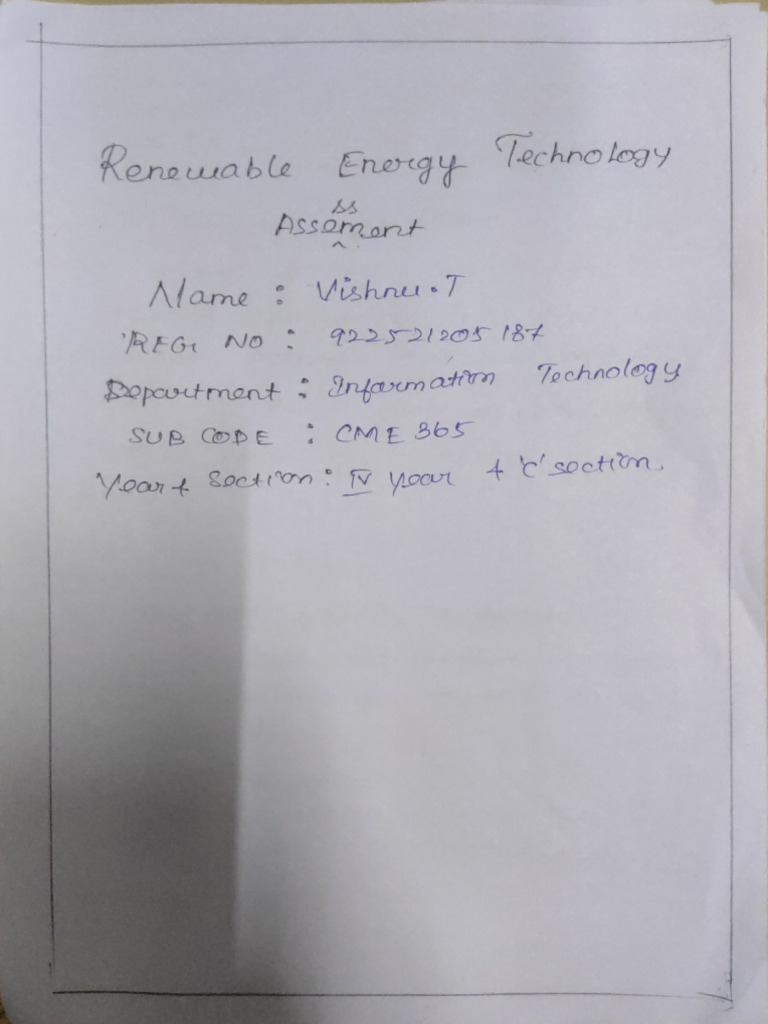 Renewable Energy Technology
Assessment
Name : Vishnu.T
REG NO : 922521205187
Department : Information Technology
SUB CODE : CME 365
Year + Section : IV year + 'C' section.